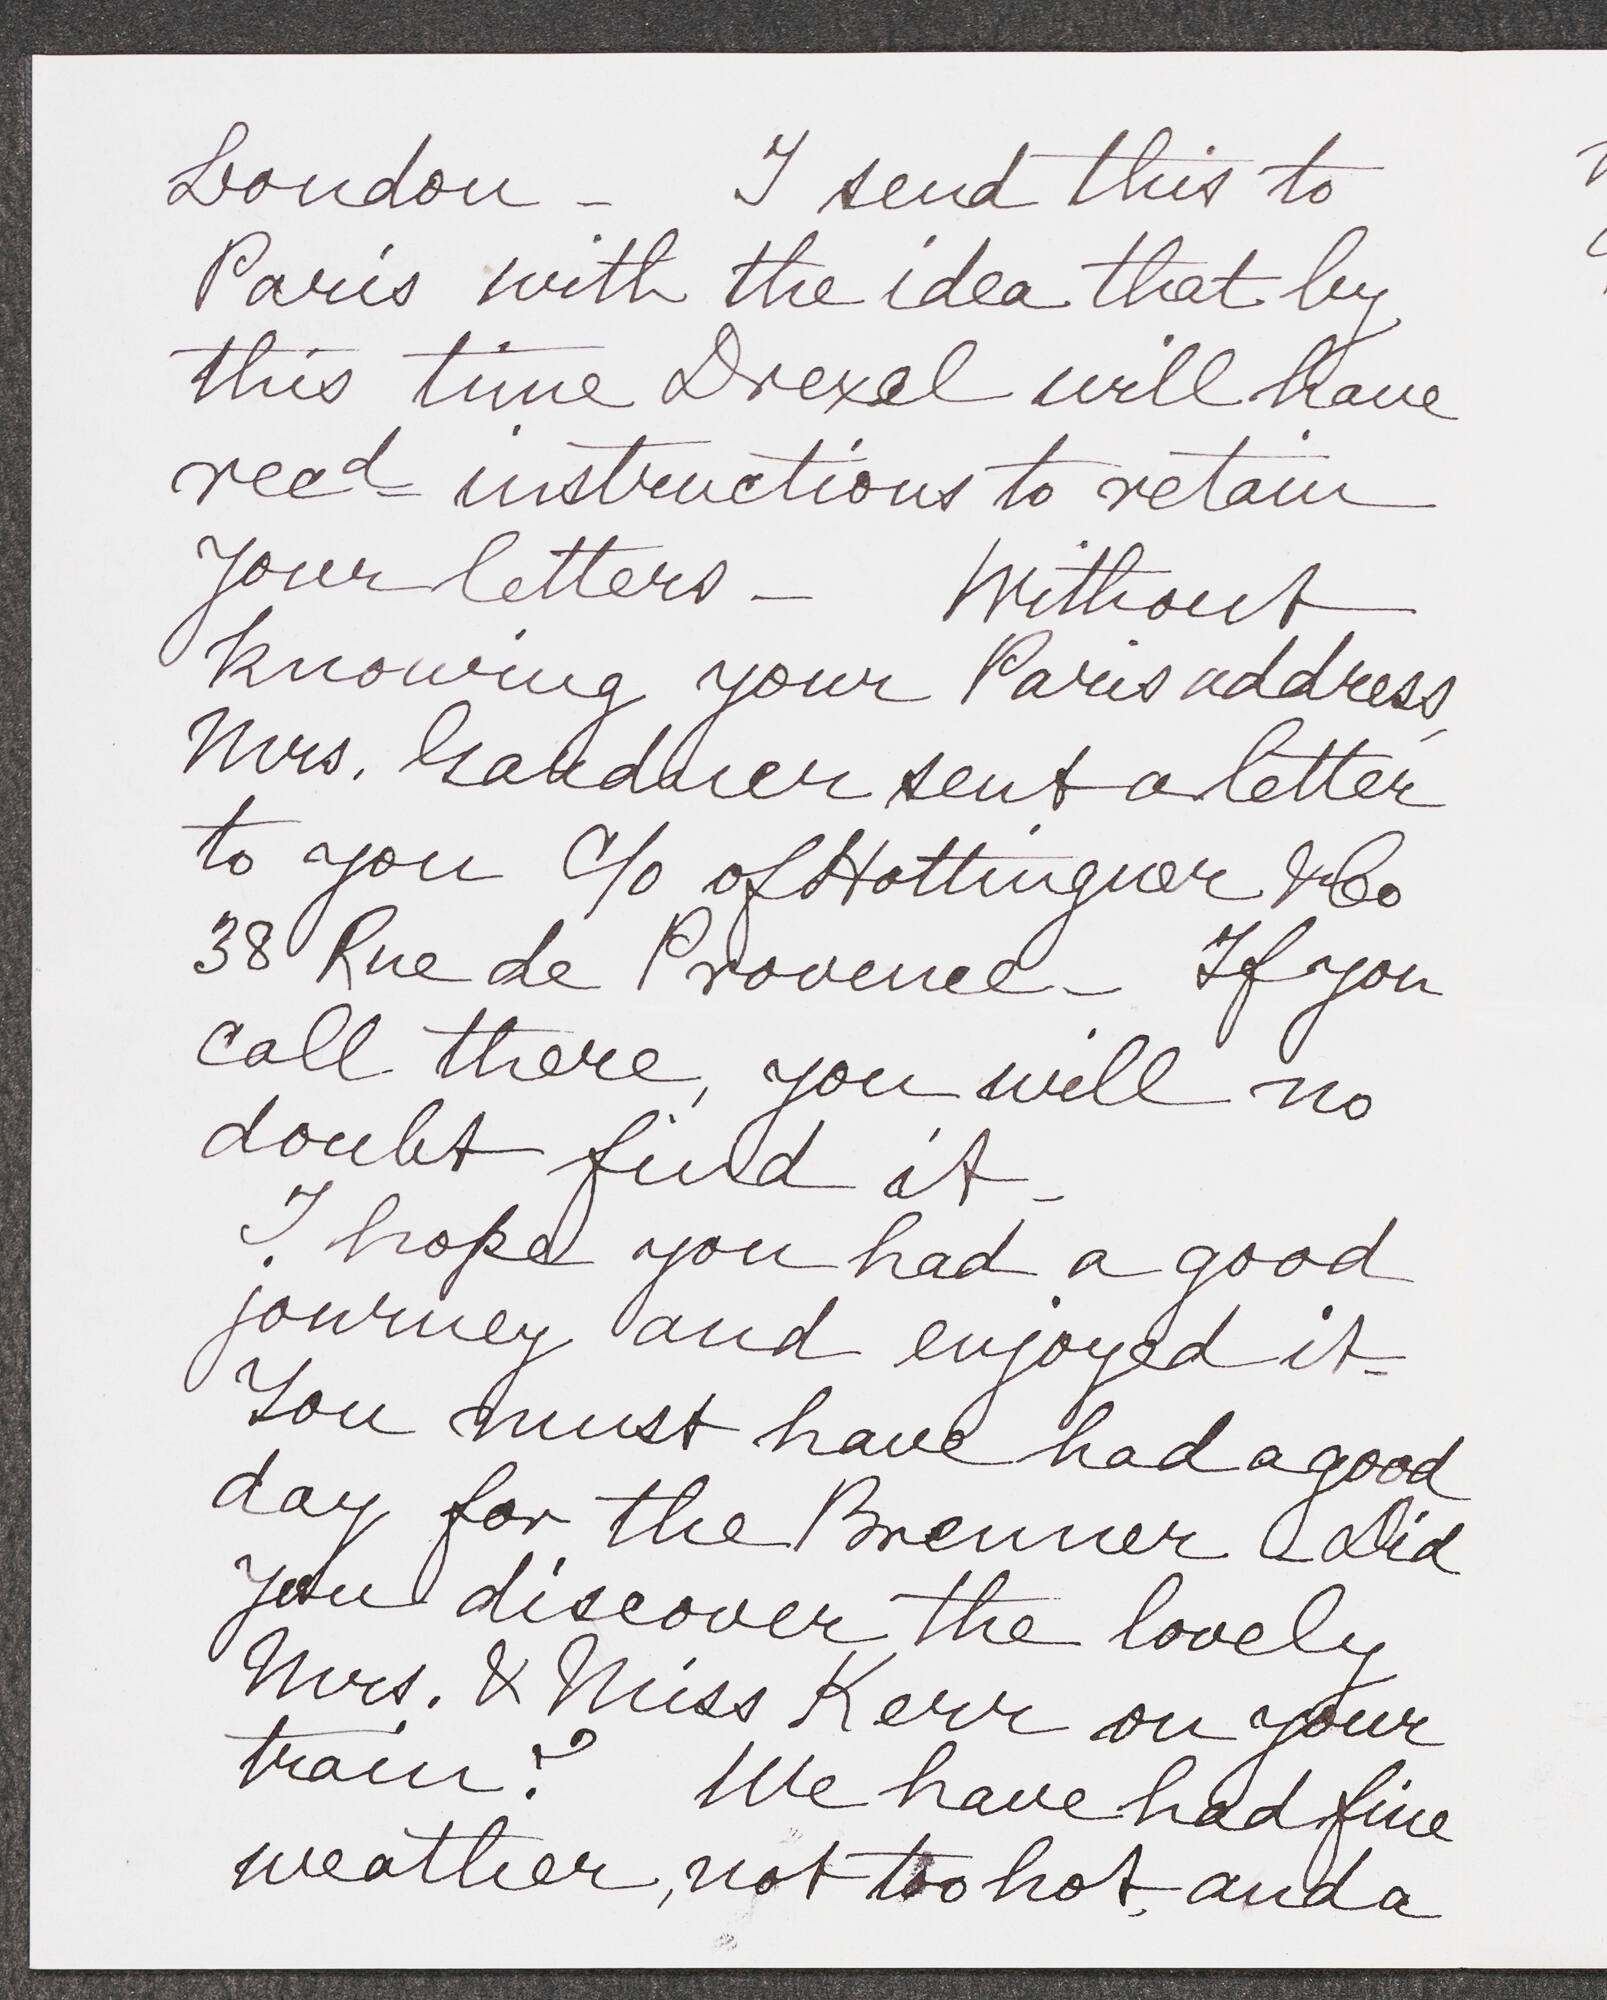 London – I send this to
Paris with the idea that by
this time Drexel will have
recd instructions to retain
your letters – Without
knowing your Paris address,
Mrs. Gardner sent a letter
to you c/o of Hottinguer & Co
38 Rue de Provence – If you
call there, you will no
doubt find it –
I hope you had a good
journey and enjoyed it –
You must have had a good
day for the Brenner – Did
you discover the lovely
Mrs. & Miss Kerr on your
train? We have had fine
weather, not too hot, and a